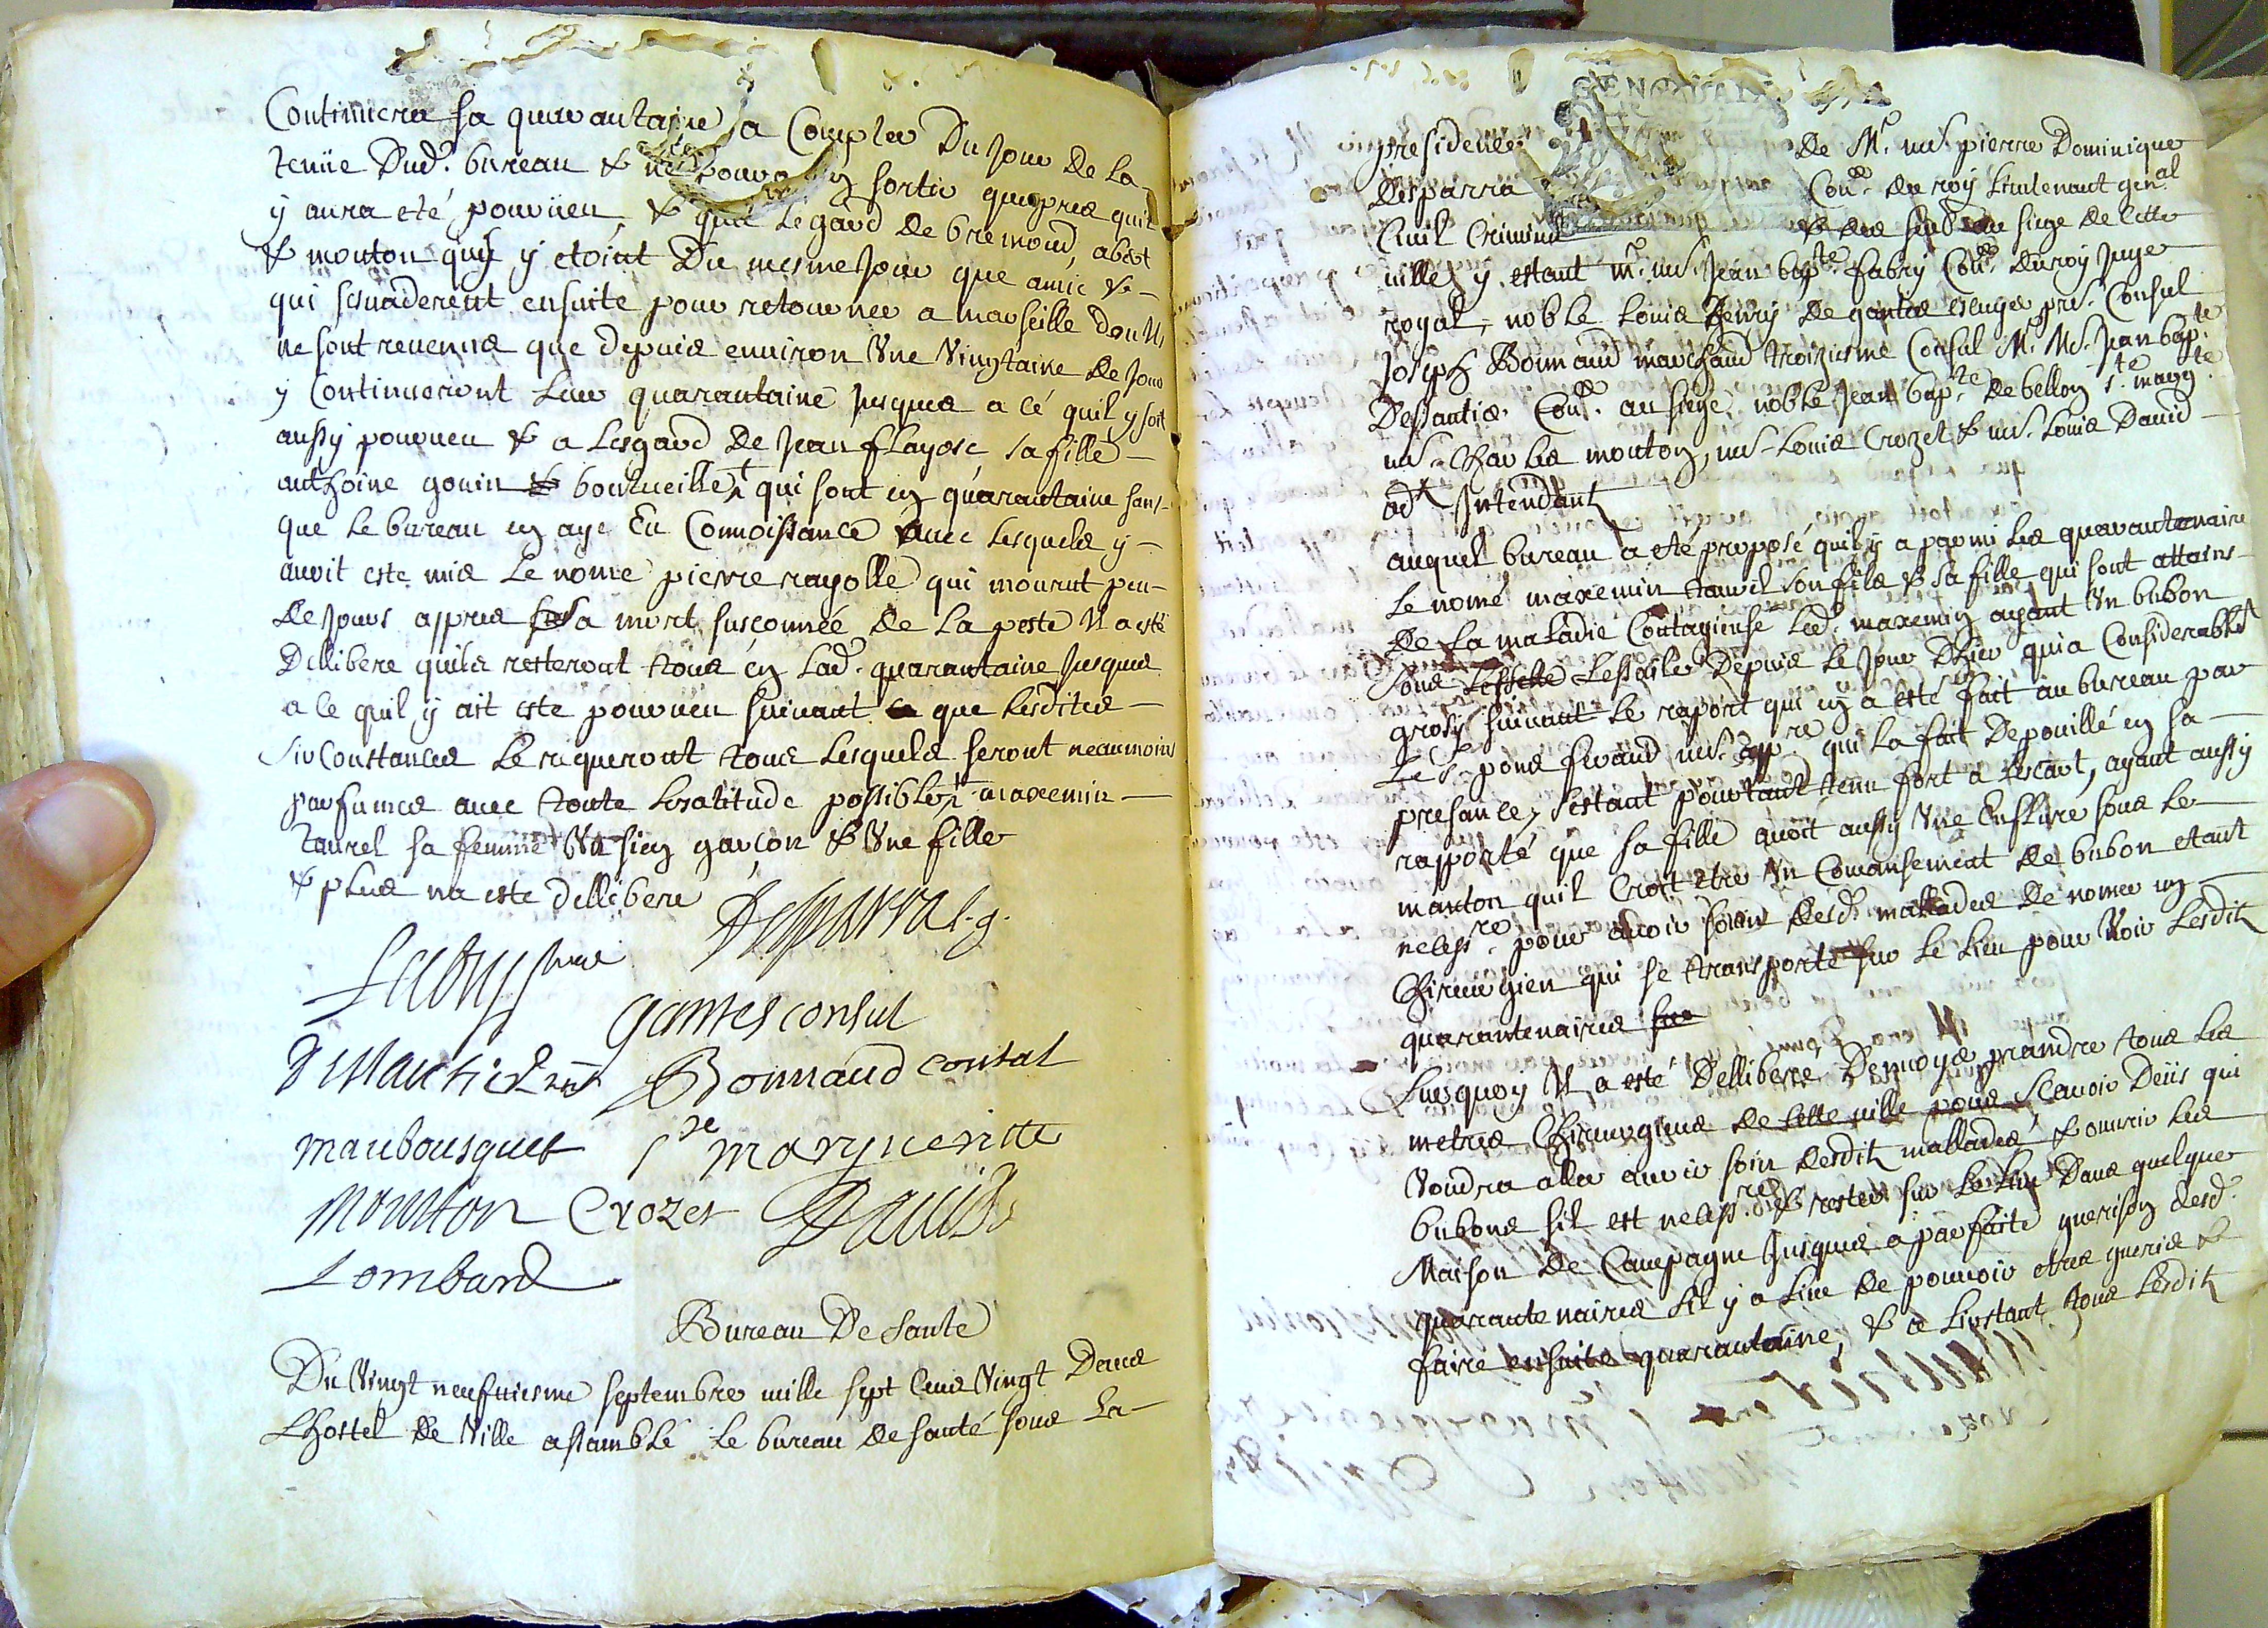 Continuera sa quarantaine a Compter Du Jour De La
tenüe Dud. bureau & ne pourra en sortir quapres quil
y aura eté pourveu, & qua Legard de bremond, abert
& mouton quy y etoint Du mesme Jour que amic &
qui sevaderent ensuite pour retourner a marseille dou Ils
ne sont revenus que depuis environ Une Vingtaine de Jours
y Continueront Leur quarantaine Jusques a cé quil y soit
aussy pourveu & a Lesgard De Jean flayosc sa fille
anthoine gouin & bourlueille qui sont en quarantaine sans
que Le bureau en aye Eu Connoissance Avec Lesquels y
avoit este mis Le nomé pierre rayolle qui mourut peu
De Jours appres sa mort susconnée De La peste Il a esté
Dellibere quils resteront tous en Lad. quarantaine Jusques
a ce quil y ait este pourveu suivant ce que Lesdites
sirConstances Le requeront tous Lesquels seront neaumoins
parfumes avec toute Lexatitude possible, maxemin
taurel sa femme Un sien garcon & Une fille
& plus na este dellibere
Desparra l. g.
fabry Juge
gantes consul
Dessanties
Bonnaud consul
maubousquet
Ste margueritte
Mouton Crozet David
Lombard
Bureau De Sante
Du Vingt neufviesme septembre mille sept Cens Vingt Dans
Lhostel de Ville assamblé Le bureau de santé sous La
GENERALI
presidence De Mr. me. pierre Dominique
Desparra Conr. du roy Lieutenant genal
Civil Criminel & des au siege de Cette
ville y estant mr. me. Jean bapte. fabry Conr. du roy Juge
royal, noble Louis henry de gantes escuyer pr. Consul
Joseph Bonnaud marchand troizieme Consul Mr. Me. Jean bapte.
Dessanties Conr. au siege, noble Jean bapte. De bellon ste. margte.
me. Charles mouton, me. Louis Crozet & me. Louis David
adt. Intendant
auquel bureau a eté proposé quil y a parmi Les quarantenaire
Le nomé maxemin taurel son fils & sa fille qui sont attains
De La maladie Contagieuse Led. maxemin ayant Un bubon
sous Lessaile Depuis Le Jour Dhier quia Considerablet
grosy suivant Le raport qui en a este fait au bureau par
Le sr. pons feraud me. appre. qui La fait Depouillé en sa
presance, sestant pourtant tenu fort a Lescart, ayant aussy
rapporté que sa fille avoit aussy Une Enflure sous Le
manton quil Croit etre Un Comansement de bubon etant
necessre. pour avoir soin desd. mallades De nomer un
Chirurgien qui se transporte sur Le Lieu pour Voir Lesdits
quarantenaires
Surquoy Il a esté Delliberé Denvoyer prandre tous Les
metres Chirurgiens de cette ville pour Scavoir Deüs qui
Voudra aller avoir soin desdits mallades & ouvrir Les
bubons sil est necessre. & rester sur Le Lieu Dans quelque
Maison De Campagne Jusques a parfaite guerison desd.
quarantenaires sil y a Lieu de pouvoir etre gueris &
faire ensuite quarantaine, & a Linstant tous Lesdits